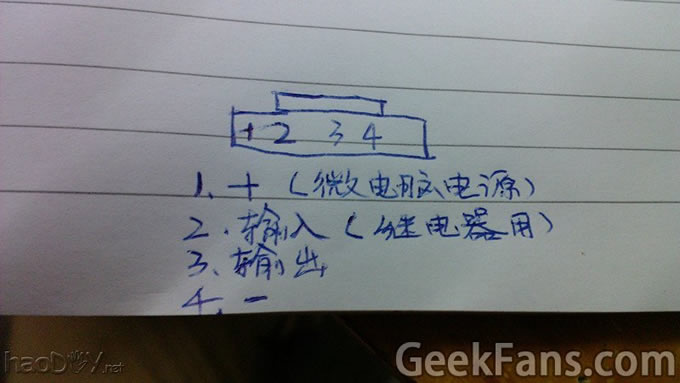 + 2 3 4
1. + (微电脑电源)
2. 输入 (继电器用)
3. 输出
4. -
haoDIY.net
GeekFans.com